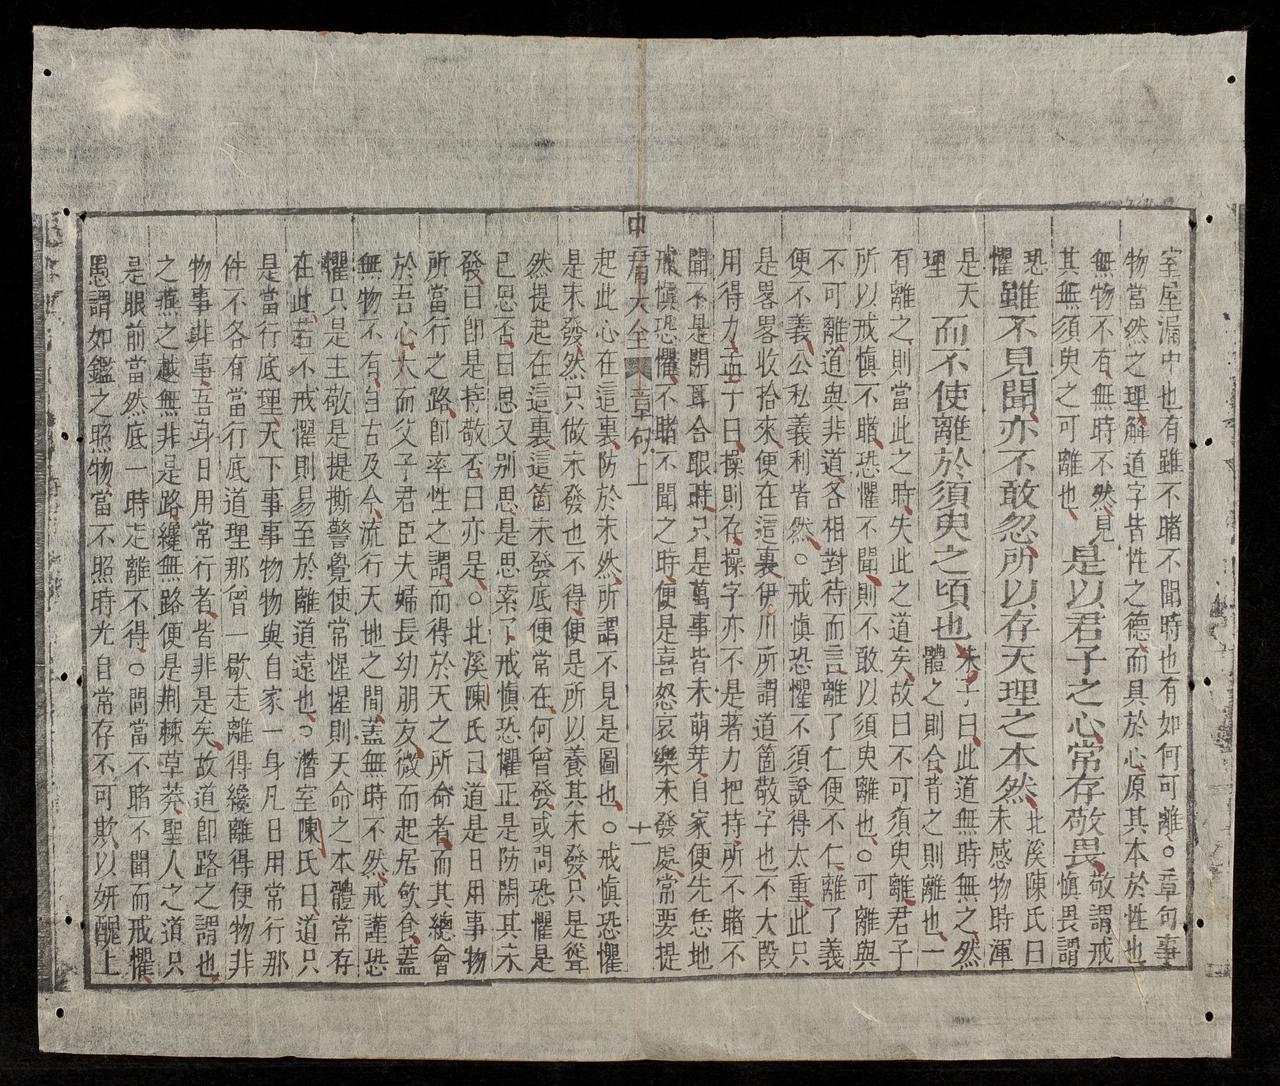 室屋漏中也有雖不睹不聞時也有如何可離○章句事
物當然之理解道字皆性之德而具於心原其本於性也
無物不有無時不然見
其無須臾之可離也
是以君子之心常存敬畏
敬謂戒
慎畏謂
恐
懼
雖不見聞亦不敢忽所以存天理之本然
北溪陳氏曰
未感物時渾
是天
理
而不使離於須臾之頃也
朱子曰此道無時無之然
體之則合背之則離也一
有離之則當此之時失此之道矣故曰不可須臾離君子
所以戒慎不睹恐懼不聞則不敢以須臾離也○可離與
不可離道與非道各相對待而言離了仁便不仁離了義
便不義公私義利皆然○戒慎恐懼不須說得太重此只
是畧畧收拾來便在這裏伊川所謂道箇敬字也不大段
用得力孟子曰操則存操字亦不是著力把持所不睹不
聞不是閉耳合眼時只是萬事皆未萌芽自家便先恁地
戒慎恐懼不睹不聞之時便是喜怒哀樂未發處常要提
中庸大全 章句上 十一
起此心在這裏防於未然所謂不見是圖也○戒慎恐懼
是未發然只做未發也不得便是所以養其未發只是聳
然提起在這裏這箇未發底便常在何曾發或問恐懼是
已思否曰思又别思是思索了戒慎恐懼正是防閑其未
發曰即是持敬否曰亦是○北溪陳氏曰道是日用事物
所當行之路即率性之謂而得於天之所命者而其總會
於吾心大而父子君臣夫婦長幼朋友微而起居飲食蓋
無物不有自古及今流行天地之間蓋無時不然戒謹恐
懼只是主敬是提撕警覺使常惺惺則天命之本體常存
在此若不戒懼則易至於離道遠也○潛室陳氏曰道只
是當行底理天下事事物物與自家一身凡日用常行那
件不各有當行底道理那曾一歇走離得纔離得便物非
物事非事吾身日用常行者皆非是矣故道即路之謂也
之燕之越無非是路纔無路便是荆棘草莽聖人之道只
是眼前當然底一時走離不得○問當不睹不聞而戒懼
愚謂如鑑之照物當不照時光自常存不可欺以妍醜上